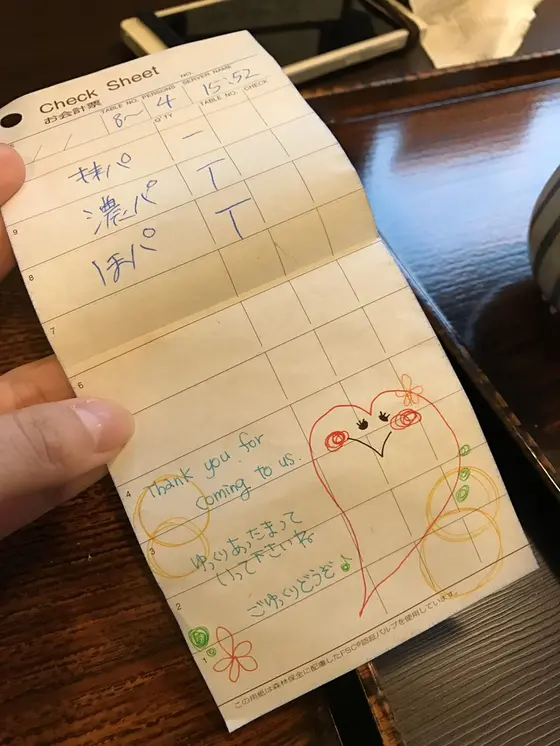 Check Sheet
お会計票
TABLE NO. PERSONS NO. SERVER NAME
8~ 4 15:52
Q'TY TABLE NO. CHECK
抹パ 一
濃パ T
ほパ T
9
8
7
6
4
Thank you for
coming to us.
3
ゆっくりあったまって
いって下さいね
2
ごゆっくりどうぞ♪
1
この用紙は森林保全に配慮したFSC®認証パルプを使用しています。